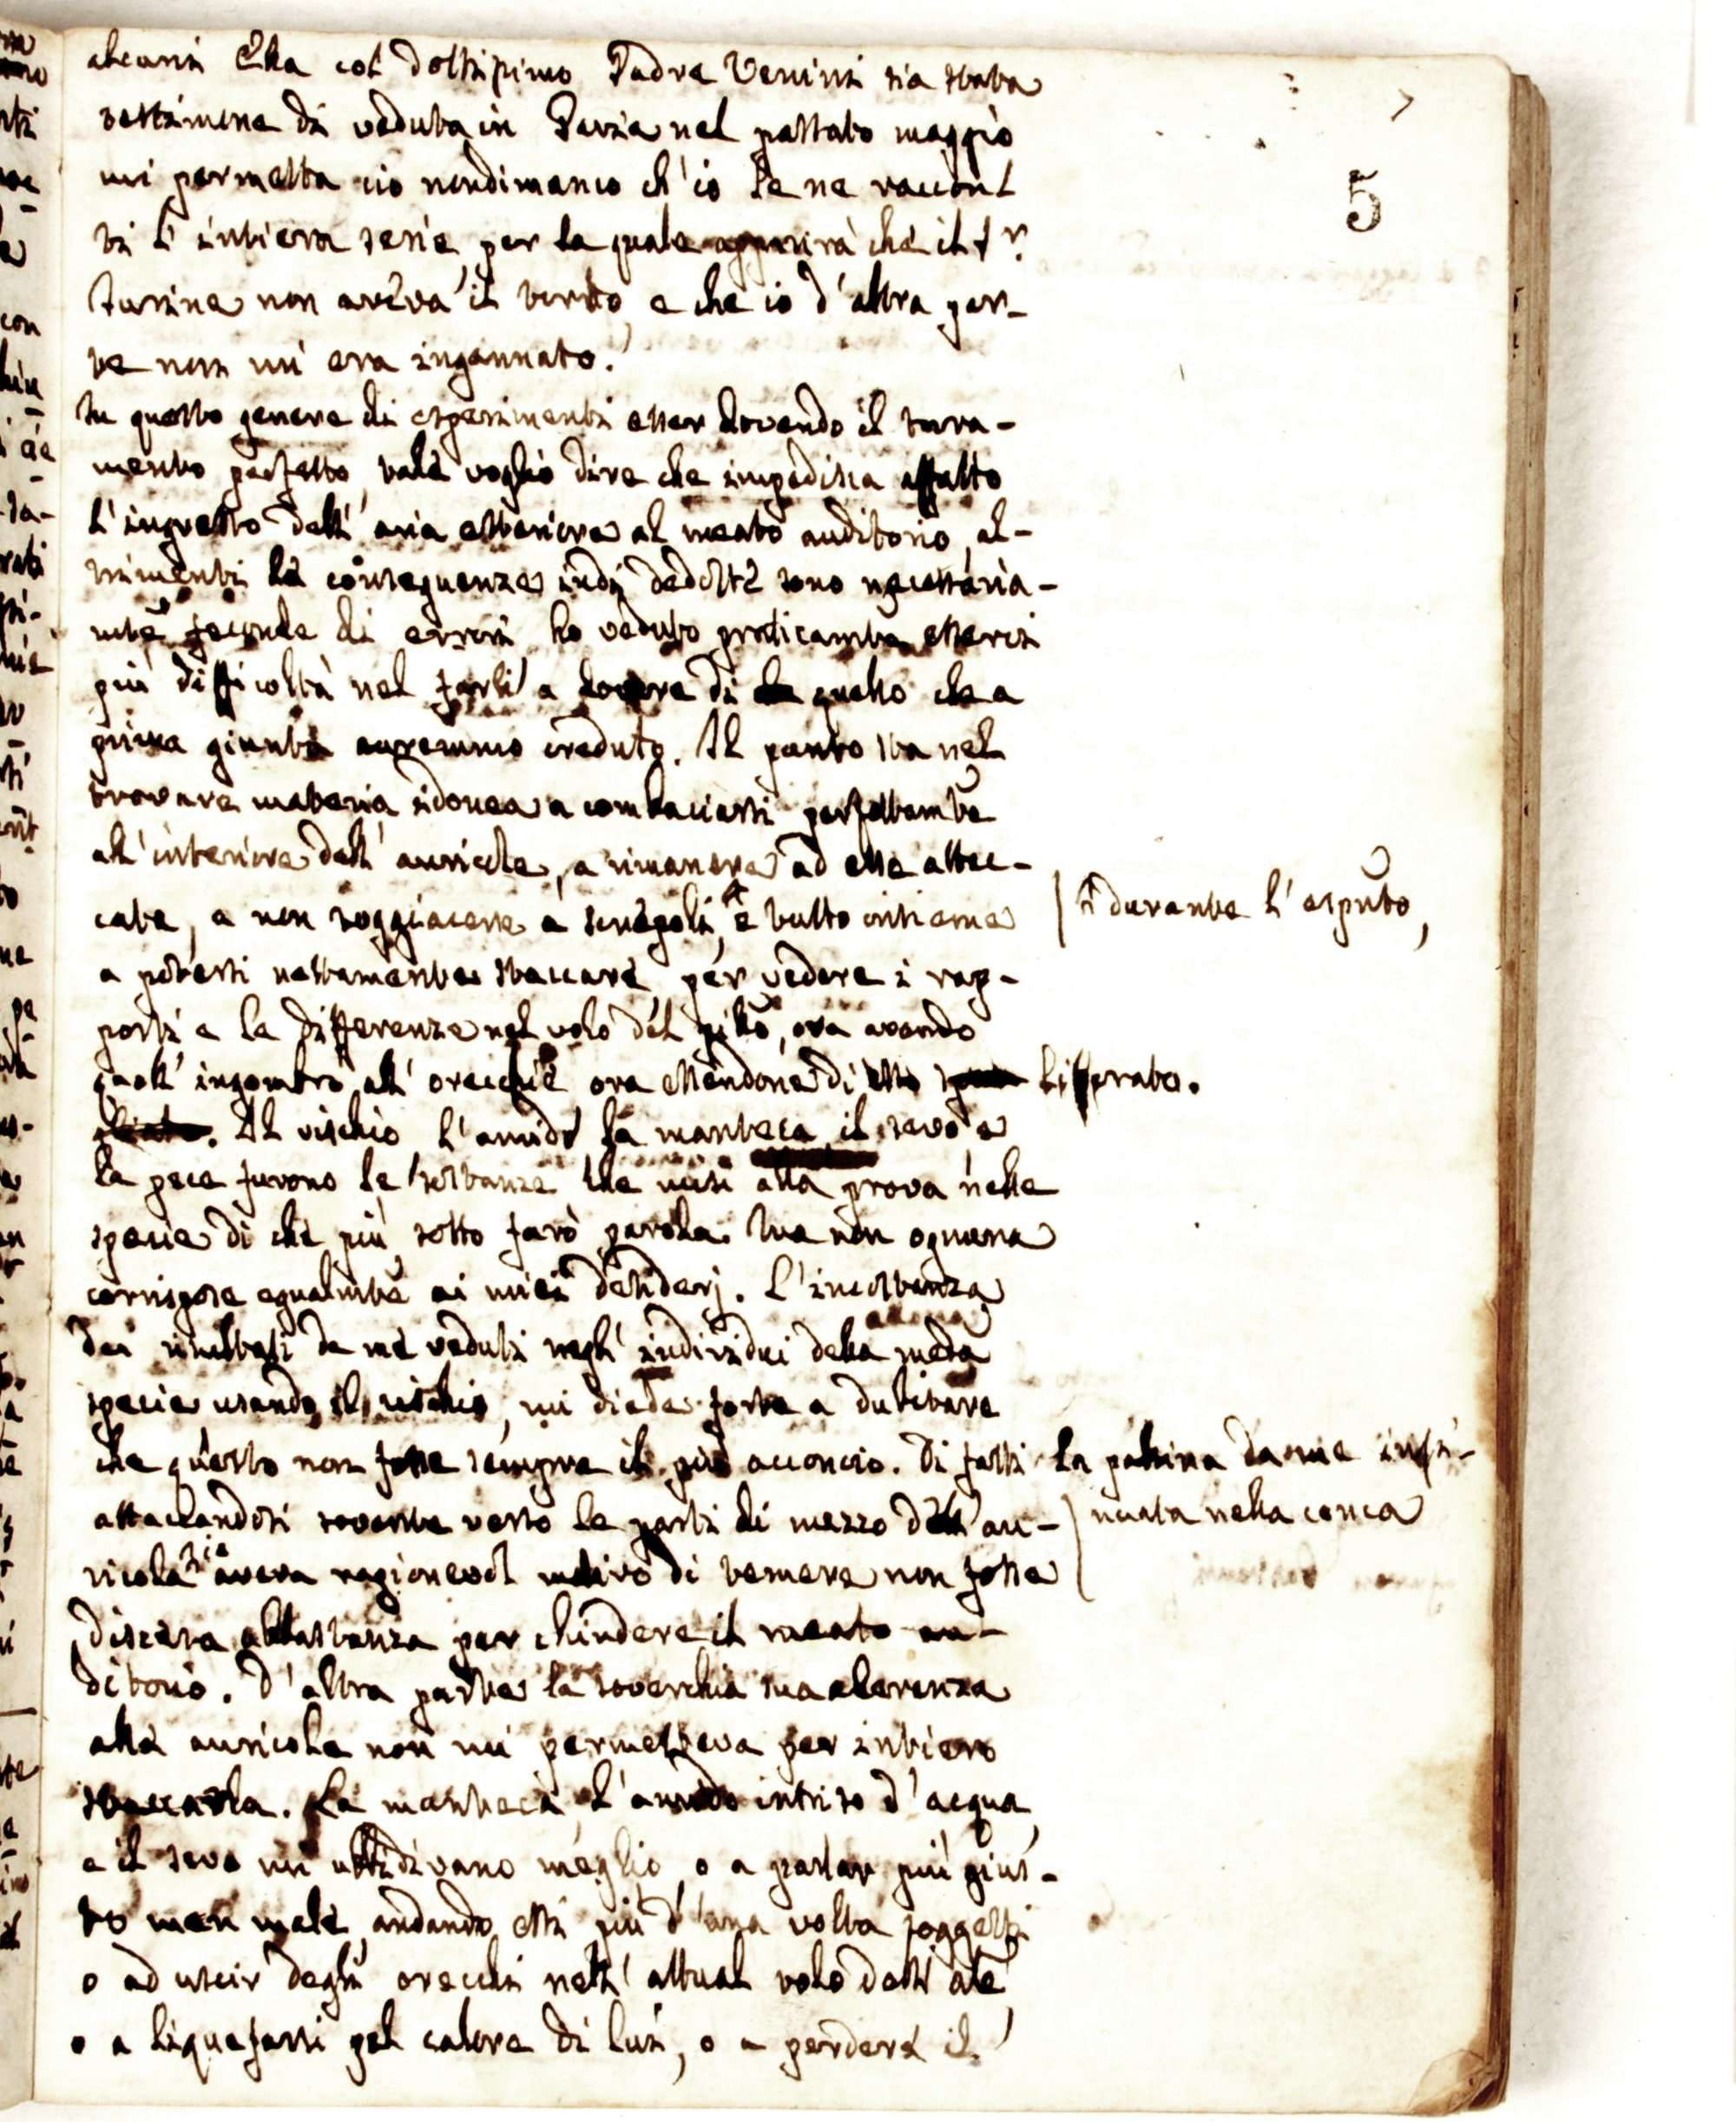 5
alcuni Ella col dottissimo Padre Venini sia stata
testimone di veduta in Pavia nel passato maggio
mi permetta cio nondimanco ch'io le ne raccon
ti l'intiera serie, per la quale apparirà che il Sr
Jurine non aveva il torto, e che io d'altra par-
te non mi era ingannato.
In questo genere di esperimenti esser dovendo il tura-
mento perfetto, tale voglio dire che impedisca affatto
l'ingresso dell'aria esteriore al meato auditorio, al-
trimenti le conseguenze indi dedotte sono necessaria-
mte feconde di errori, ho veduto praticamte esserci
più difficoltà nel farli a dovere di quello che a
prima giunta avremmo creduto. Il punto sta nel
trovare materia idonea a combaciarsi perfettamte
all'interiore dell'auricole, a rimanere ad esse attac-
cate, a non soggiacere a screpoli, e tutto insieme
durante l'esputo,
a potersi nettamente staccare, per vedere i rap-
porti e le differenze nel volo del pillo, ora avendo
quest'ingombro all'orecchie ora essendone di esso
liberato.
Il vischio, l'amido, la manteca, il sevo e
la pece furono le sostanze che misi alla prova nelle
specie di che più sotto farò parola. Ma non ognuna
corrispose egualmte ai miei desiderj. L'incostanza
dei risultati da me veduti negli individui della meda
specie usando il vischio, mi diede forte a dubitare
che questo non fosse sempre il più acconcio. Di fatti
la pania da me insi-
nuata nella conca
attaccandosi sovente verso le parti di mezzo dell'au-
ricola aveva ragionevol motivo di temere non fosse
discesa abbastanza per chiudere il meato au-
ditorio. D'altra parte la soverchia sua aderenza
alle auricole non mi permetteva per intiero
staccarla. La manteca, l'amido intriso d'acqua,
e il sevo mi ubbidivano meglio, o a parlar più gius-
to men male, andando essi più d'una volta soggetti
o ad uscir degli orecchi nell'attual volo dell'ale,
o a liquefarsi pel calore di lui, o a perdere il